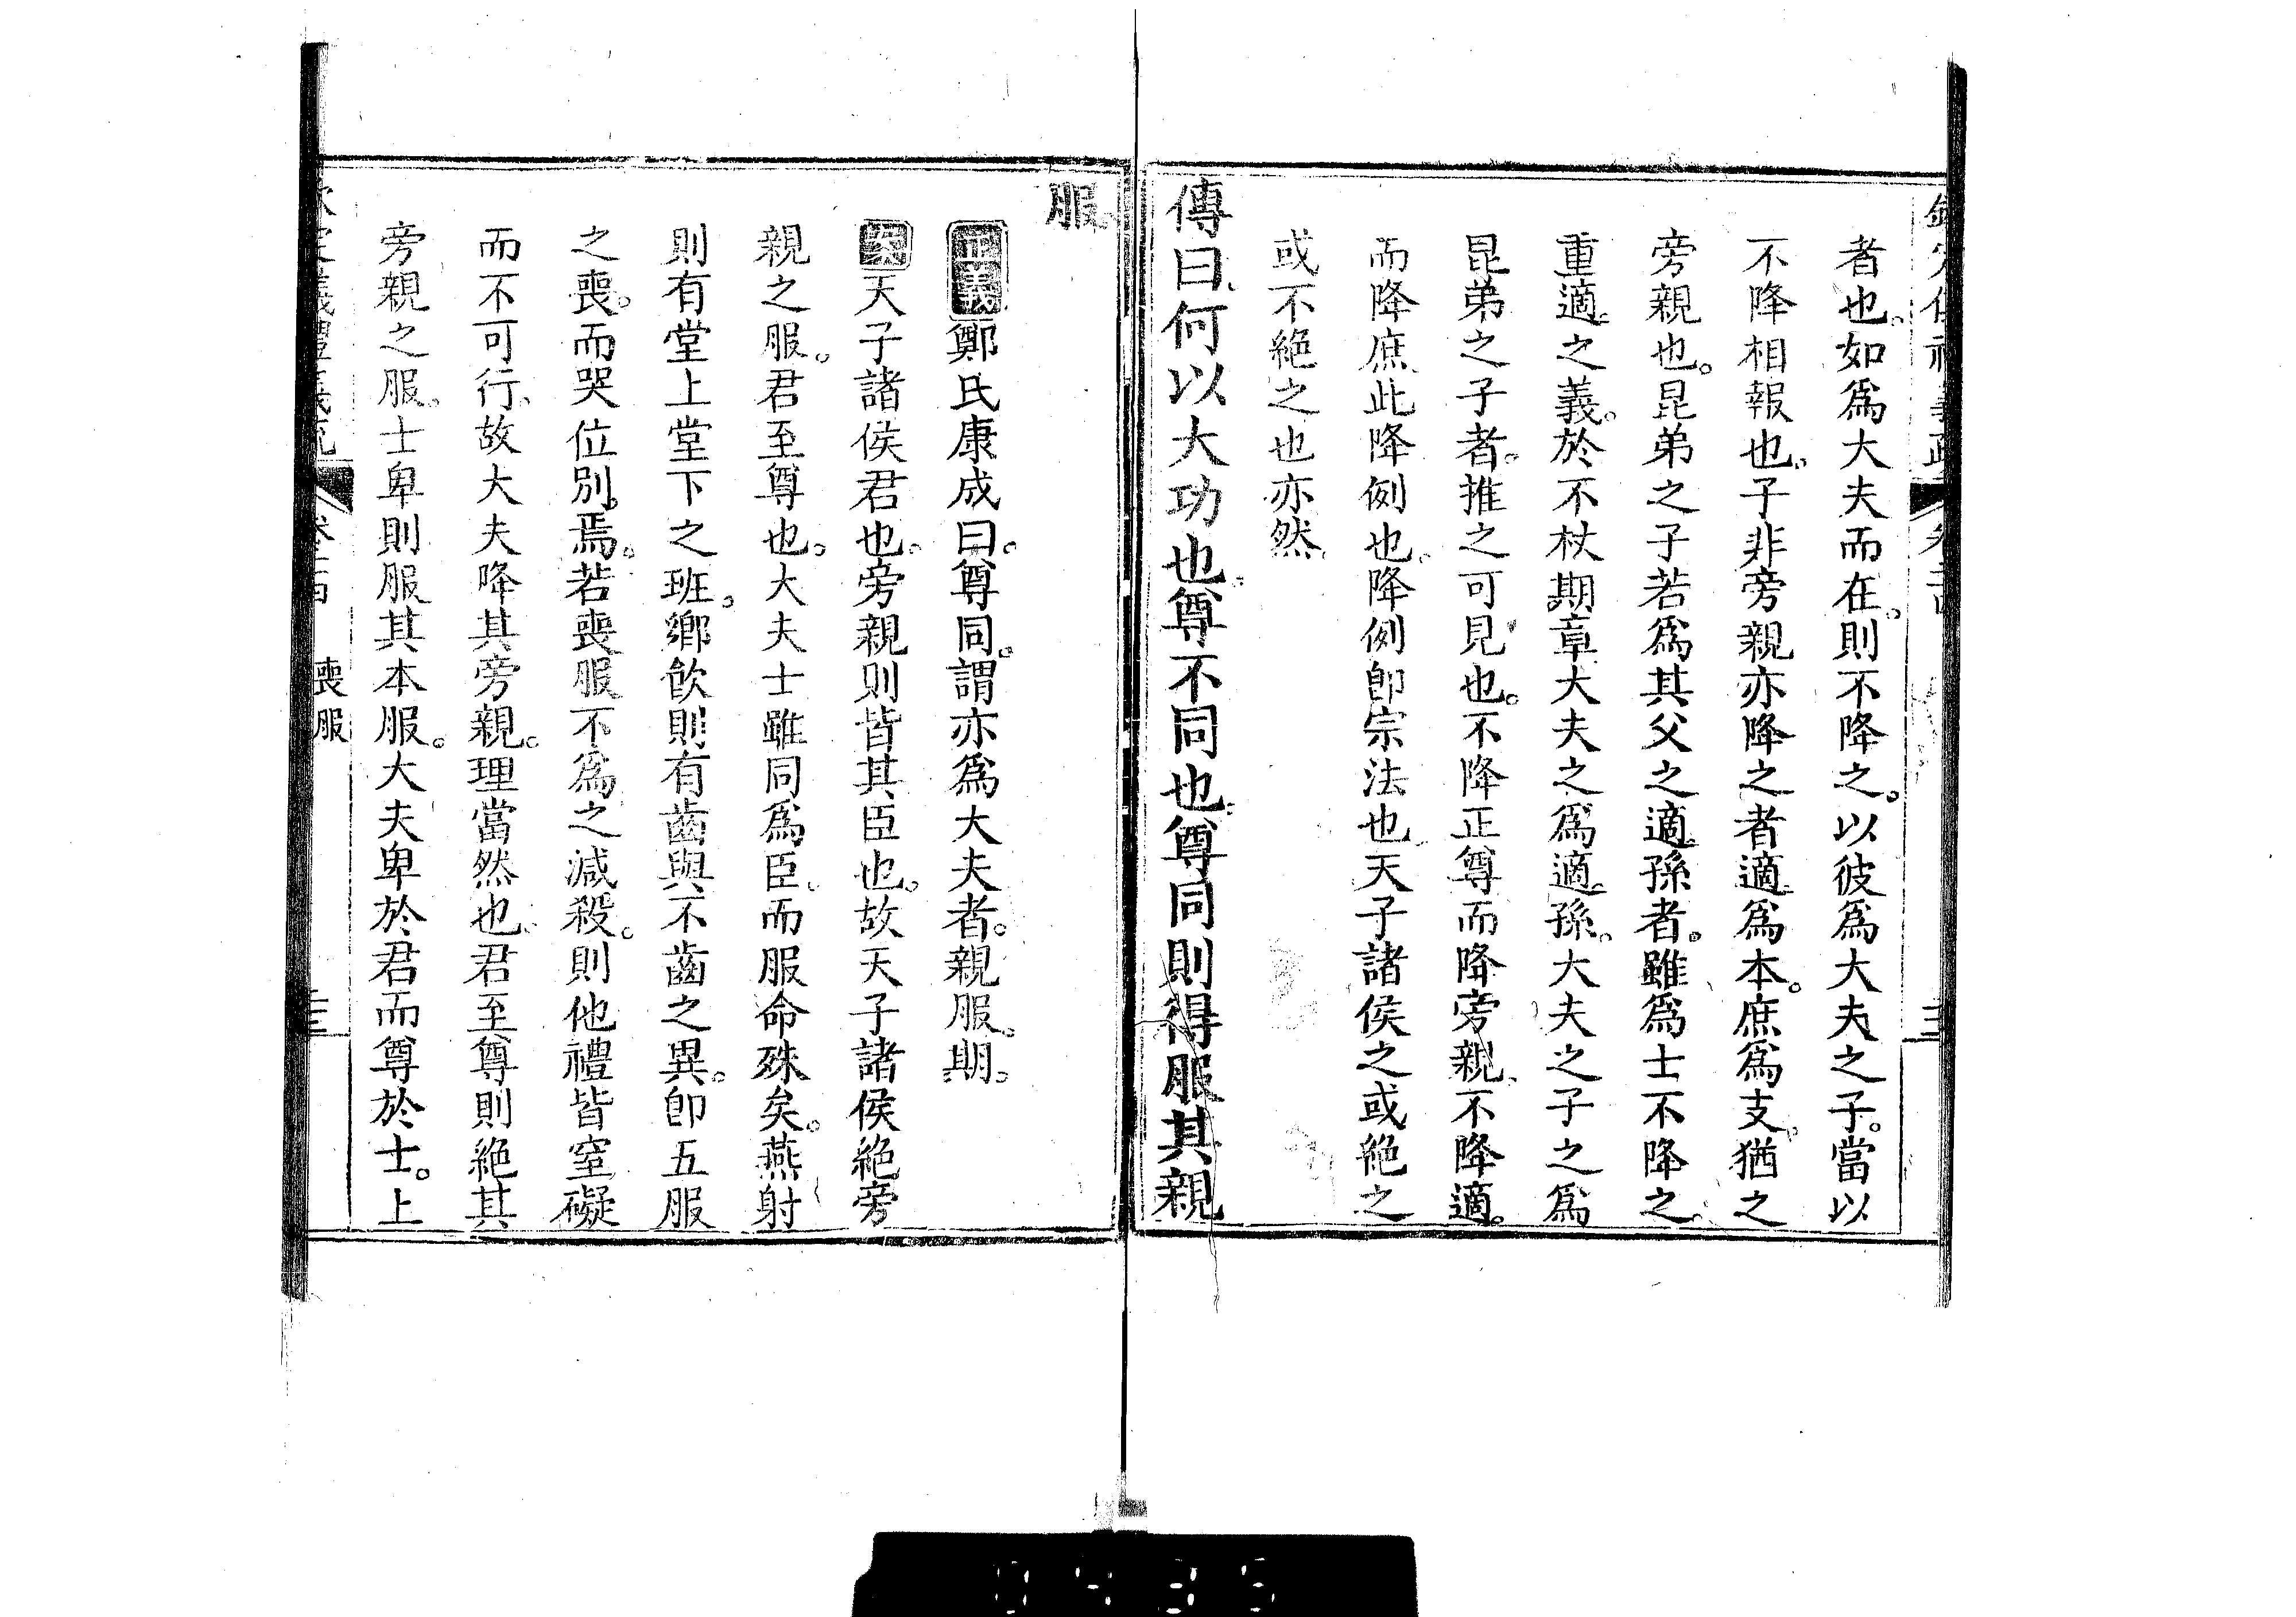 者也。如爲大夫而在。則不降之。以彼爲大夫之子。當以
不降相報也。子非旁親亦降之者適爲本。庶爲支。猶之
旁親也。昆弟之子若爲其父之適孫者。雖爲士不降之。
重適之義。於不杖期章大夫之爲適孫。大夫之子之爲
昆弟之子者。推之可見也。不降正尊而降旁親。不降適。
而降庶此降例也。降例卽宗法也天子諸侯之或絶之
或不絶之也亦然。
傳曰。何以大功也。尊不同也。尊同則得服其親
服。
正義鄭氏康成曰。尊同。謂亦爲大夫者。親服。期。
案天子諸侯君也。旁親則皆其臣也。故天子諸侯絶旁
親之服。君至尊也。大夫士雖同爲臣。而服命殊矣。燕射
則有堂上堂下之班。鄉飮則有齒與不齒之異。卽五服
之喪。而哭位別。焉。若喪服不爲之減殺。則他禮皆窒礙
而不可行。故大夫降其旁親。理當然也。君至尊則絶其
旁親之服。士卑則服其本服。大夫卑於君而尊於士。上
喪服